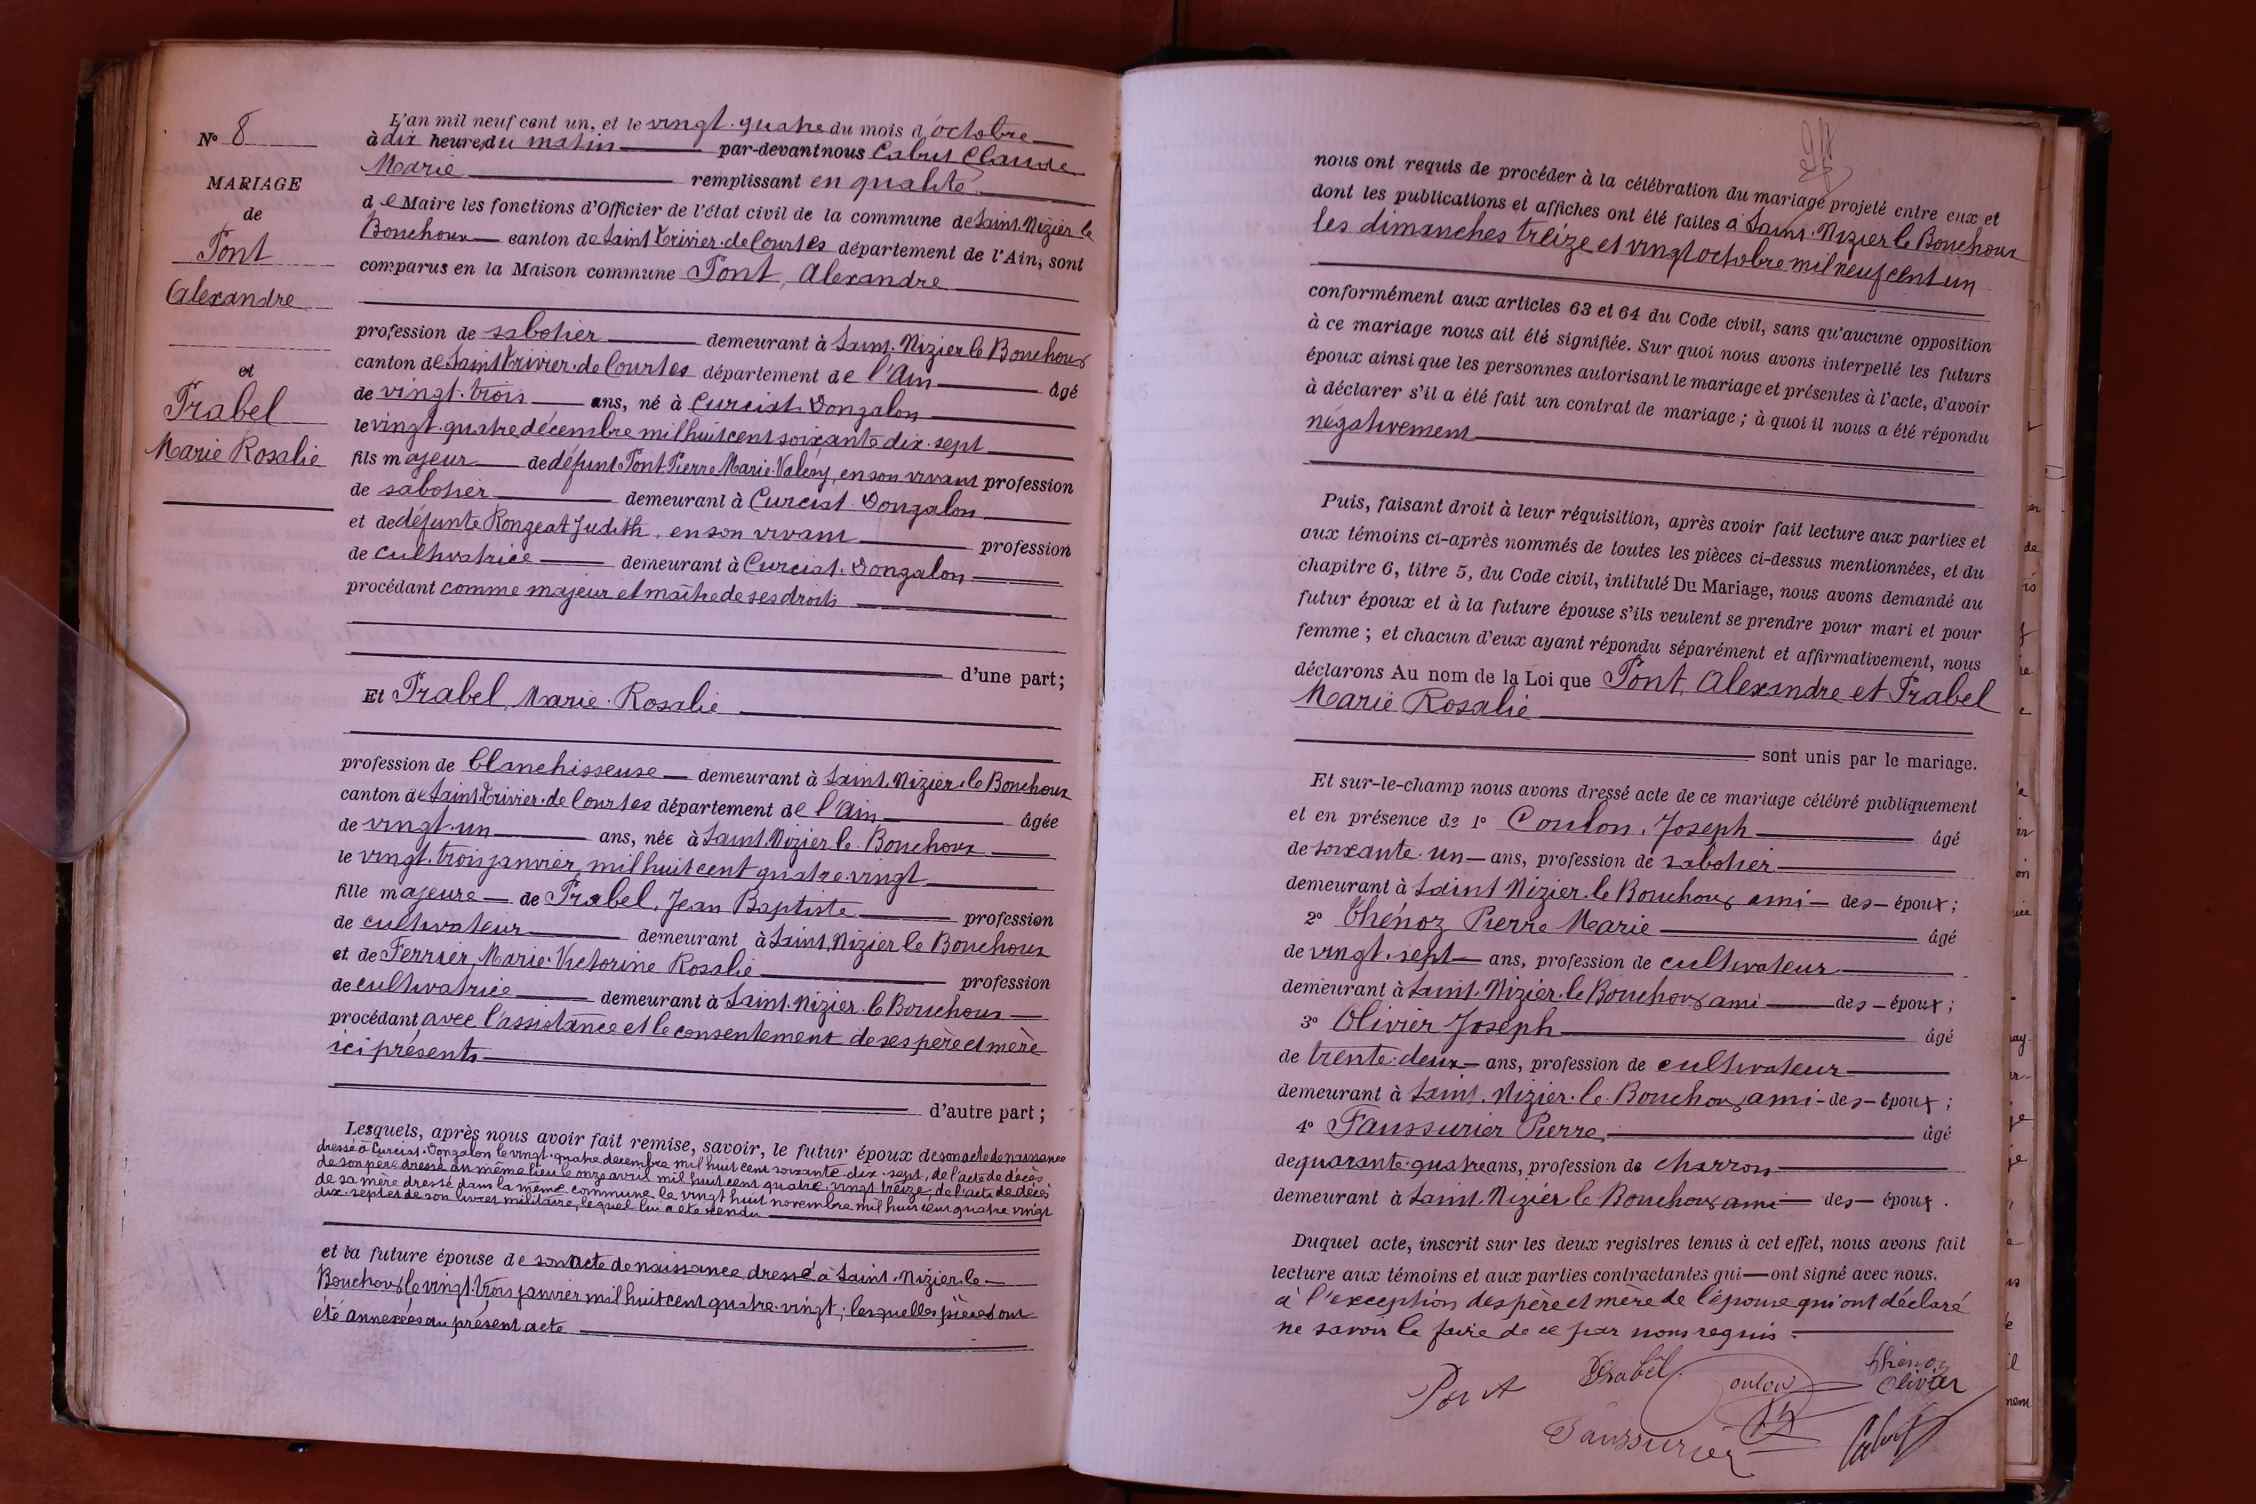 N° 8
MARIAGE
de
Pont
Alexandre
et
Prabel
Marie Rosalie
L'an mil neuf cent un, et le vingt-quatre du mois d'octobre
à dix heures du matin par-devant nous Cabut Claude
Marie remplissant en qualité
de Maire les fonctions d'Officier de l'état civil de la commune de Saint-Nizier le
Bouchoux canton de Saint Trivier-de Courtes département de l'Ain, sont
comparus en la Maison commune Pont, Alexandre
profession de sabotier demeurant à Saint-Nizier le Bouchoux
canton de Saint Trivier-de Courtes département de l'Ain âgé
de vingt-trois ans, né à Curciat-Dongalon
le vingt-quatre décembre mil huit cent soixante dix-sept
fils majeur de défunt Pont Pierre Marie-Valéry, en son vivant profession
de sabotier demeurant à Curciat-Dongalon
et de défunte Rongeat Judith, en son vivant profession
de cultivatrice demeurant à Curciat-Dongalon
procédant comme majeur et maître de ses droits
d'une part;
Et Prabel, Marie-Rosalie
profession de blanchisseuse demeurant à Saint-Nizier-le Bouchoux
canton de Saint-Trivier-de Courtes département de l'Ain âgée
de vingt-un ans, née à Saint-Nizier le-Bouchoux
le vingt-trois janvier mil huit cent quatre-vingt
fille majeure de Prabel, Jean Baptiste profession
de cultivateur demeurant à Saint-Nizier le Bouchoux
et de Ferrier, Marie-Victorine Rosalie profession
de cultivatrice demeurant à Saint-Nizier-le Bouchoux
procédant avec l'assistance et le consentement de ses père et mère
ici présents
d'autre part;
Lesquels, après nous avoir fait remise, savoir, le futur époux de son acte de naissance
dressé à Curciat-Dongalon le vingt-quatre décembre mil huit cent soixante-dix-sept, de l'acte de décès
de son père dressé au même lieu le onze avril mil huit cent quatre-vingt treize, de l'acte de décès
de sa mère dressé dans la même commune le vingt huit novembre mil huit cent quatre vingt
dix-sept et de son livret militaire, lequel lui a été rendu
et la future épouse de son acte de naissance, dressé à Saint-Nizier-le
Bouchoux le vingt-trois janvier mil huit cent quatre-vingt; lesquelles pièces ont
été annexées au présent acte
nous ont requis de procéder à la célébration du mariage projeté entre eux et
dont les publications et affiches ont été faites à Saint-Nizier le Bouchoux
les dimanches treize et vingt octobre mil neuf cent un
conformément aux articles 63 et 64 du Code civil, sans qu'aucune opposition
à ce mariage nous ait été signifiée. Sur quoi nous avons interpellé les futurs
époux ainsi que les personnes autorisant le mariage et présentes à l'acte, d'avoir
à déclarer s'il a été fait un contrat de mariage; à quoi il nous a été répondu
négativement
Puis, faisant droit à leur réquisition, après avoir fait lecture aux parties et
aux témoins ci-après nommés de toutes les pièces ci-dessus mentionnées, et du
chapitre 6, titre 5, du Code civil, intitulé Du Mariage, nous avons demandé au
futur époux et à la future épouse s'ils veulent se prendre pour mari et pour
femme; et chacun d'eux ayant répondu séparément et affirmativement, nous
déclarons Au nom de la Loi que Pont, Alexandre et Prabel
Marie Rosalie
sont unis par le mariage.
Et sur-le-champ nous avons dressé acte de ce mariage célébré publiquement
et en présence de 1° Coulon, Joseph âgé
de soixante-un ans, profession de sabotier
demeurant à Saint Nizier-le Bouchoux ami des époux;
2° Thénoz Pierre Marie âgé
de vingt-sept ans, profession de cultivateur
demeurant à Saint-Nizier-le Bouchoux ami des époux;
3° Olivier Joseph âgé
de trente-deux ans, profession de cultivateur
demeurant à Saint-Nizier-le-Bouchoux ami des époux;
4° Faussurier Pierre, âgé
de quarante-quatre ans, profession de charron
demeurant à Saint-Nizier le Bouchoux ami des époux.
Duquel acte, inscrit sur les deux registres tenus à cet effet, nous avons fait
lecture aux témoins et aux parties contractantes qui ont signé avec nous.
à l'exception des père et mère de l'épouse qui ont déclaré
ne savoir le faire de ce par nous requis.
Pont Prabel Coulon Thénoz
Olivier
Faussurier Cabut